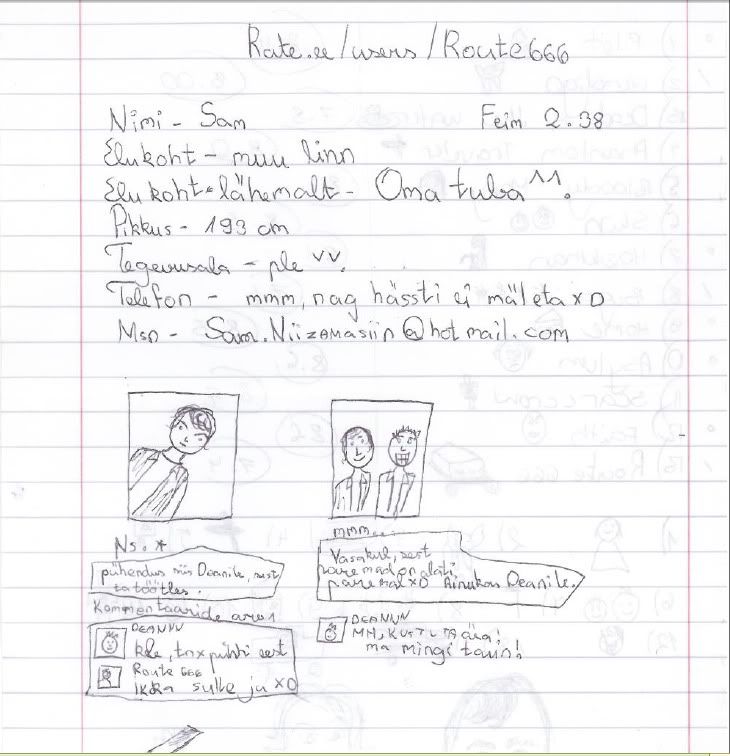 Rate.ee/users/Route666
Nimi - Sam Feim 2.38
Elukoht - muu linn
Elukoht lähemalt - Oma tuba ^^.
Pikkus - 193 cm
Tegevusala - ple vv.
Telefon - mmm, nag hässti ei mäleta xD
Msn - Sam.Niizamasiin@hotmail.com
Ns. *
pühendus siis Deanile, sest
ta töötles.
Kommentaaride arv 1
DEANNN
kle, tnx pühhi eest
Route 666
ikka sulle ju xD
mmm..
Vasakul, sest
paremad on alati
paremal xD Ainukas Deanile.
DEANNN
MH, KUSTUTA ära!
ma mingi